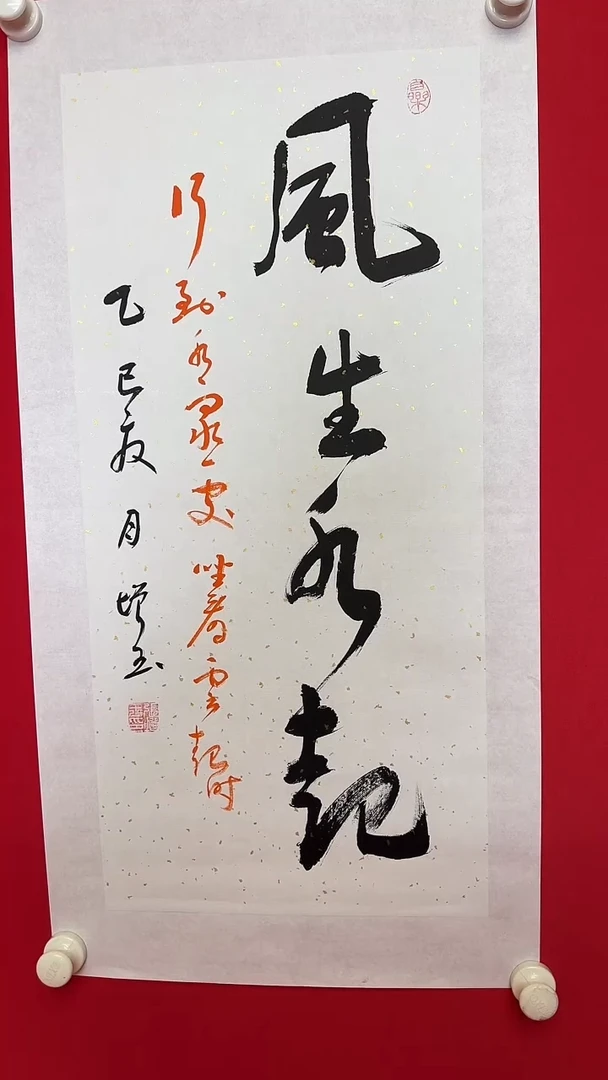 風生水起
行到水窮處坐看雲起時
乙巳夏月增玉